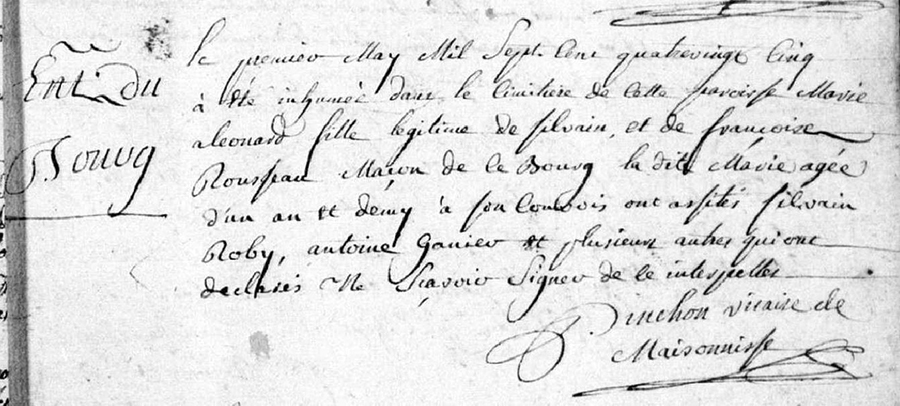 Ent. du
Bourg
le premier May Mil Sept Cent quatrevingt Cinq
à été inhumée dans le Cimitiere de Cette paroisse Marie
aleonard fille legitime de silvain, et de françoise
Rousseau Maçon de ce Bourg la dite Marie agée
d'un an et demy à son Convois ont assités silvain
Roby, antoine Ganier et plusieurs autres qui ont
declarés Ne Sçavoir Signer de ce interpellés
Pinchon vicaire de
Maisonnisse